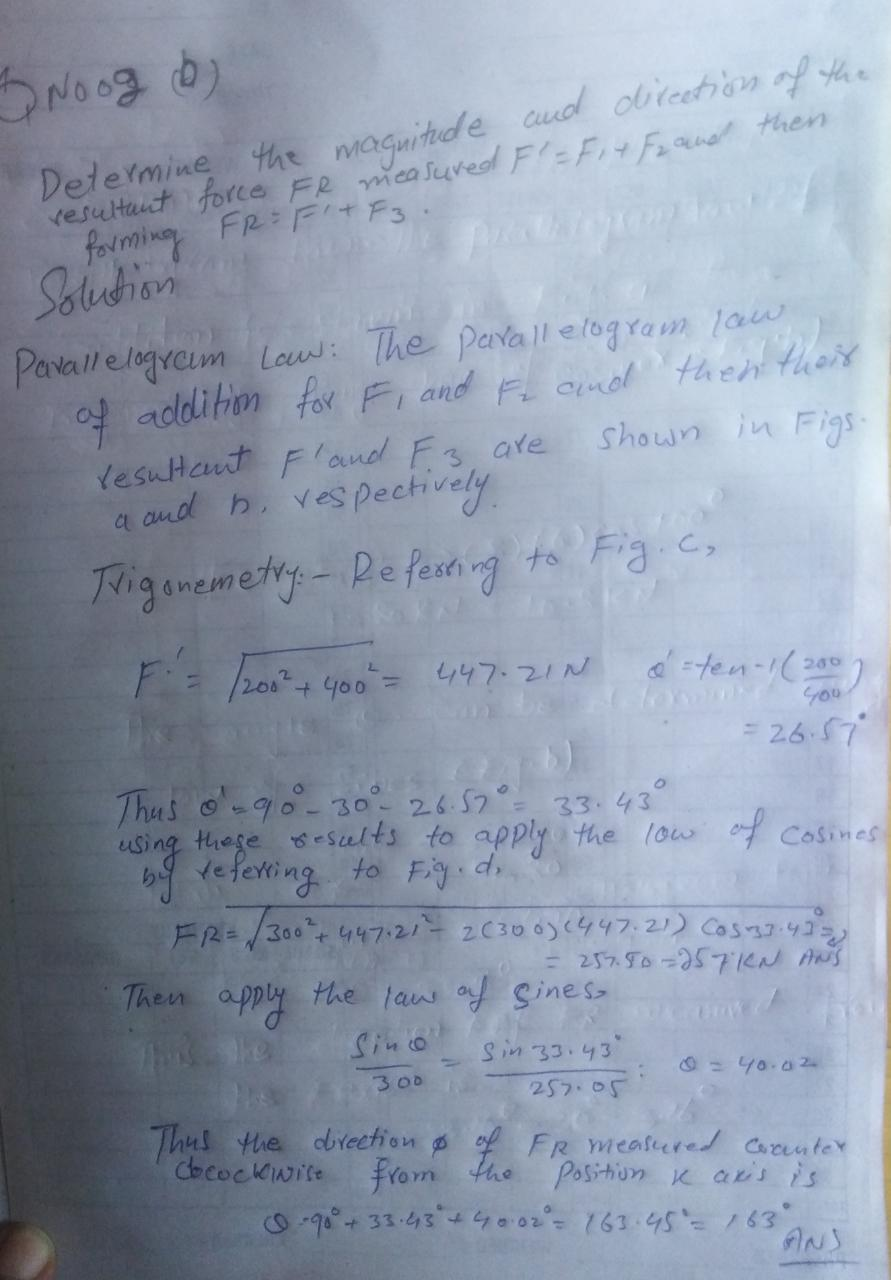 QNo 03 (b)
Determine the magnitude and direction of the
resultant force FR measured F' = F1 + F2 and then
forming FR = F' + F3.
Solution
Parallelogram Law: The parallelogram law
of addition for F1 and F2 and then their
resultant F' and F3 are shown in Figs.
a and b, respectively.
Trigonemetry:- Referring to Fig. C,
F' = √200² + 400² = 447.21N θ' = ten-1(200/400)
= 26.57°
Thus θ' = 90° - 30° - 26.57° = 33.43°
using these results to apply the low of Cosines
by referring to Fig. d,
FR = √300² + 447.21² - 2(300)(447.21) Cos 33.43° =
= 257.50 = 257 KN ANS
Then apply the law of Sines,
Sin θ/300 = Sin 33.43°/257.05 : θ = 40.02
Thus the direction φ of FR measured counter
clocockwise from the Position x axis is
θ = 90° + 33.43° + 40.02° = 163.45° = 163°
ANS